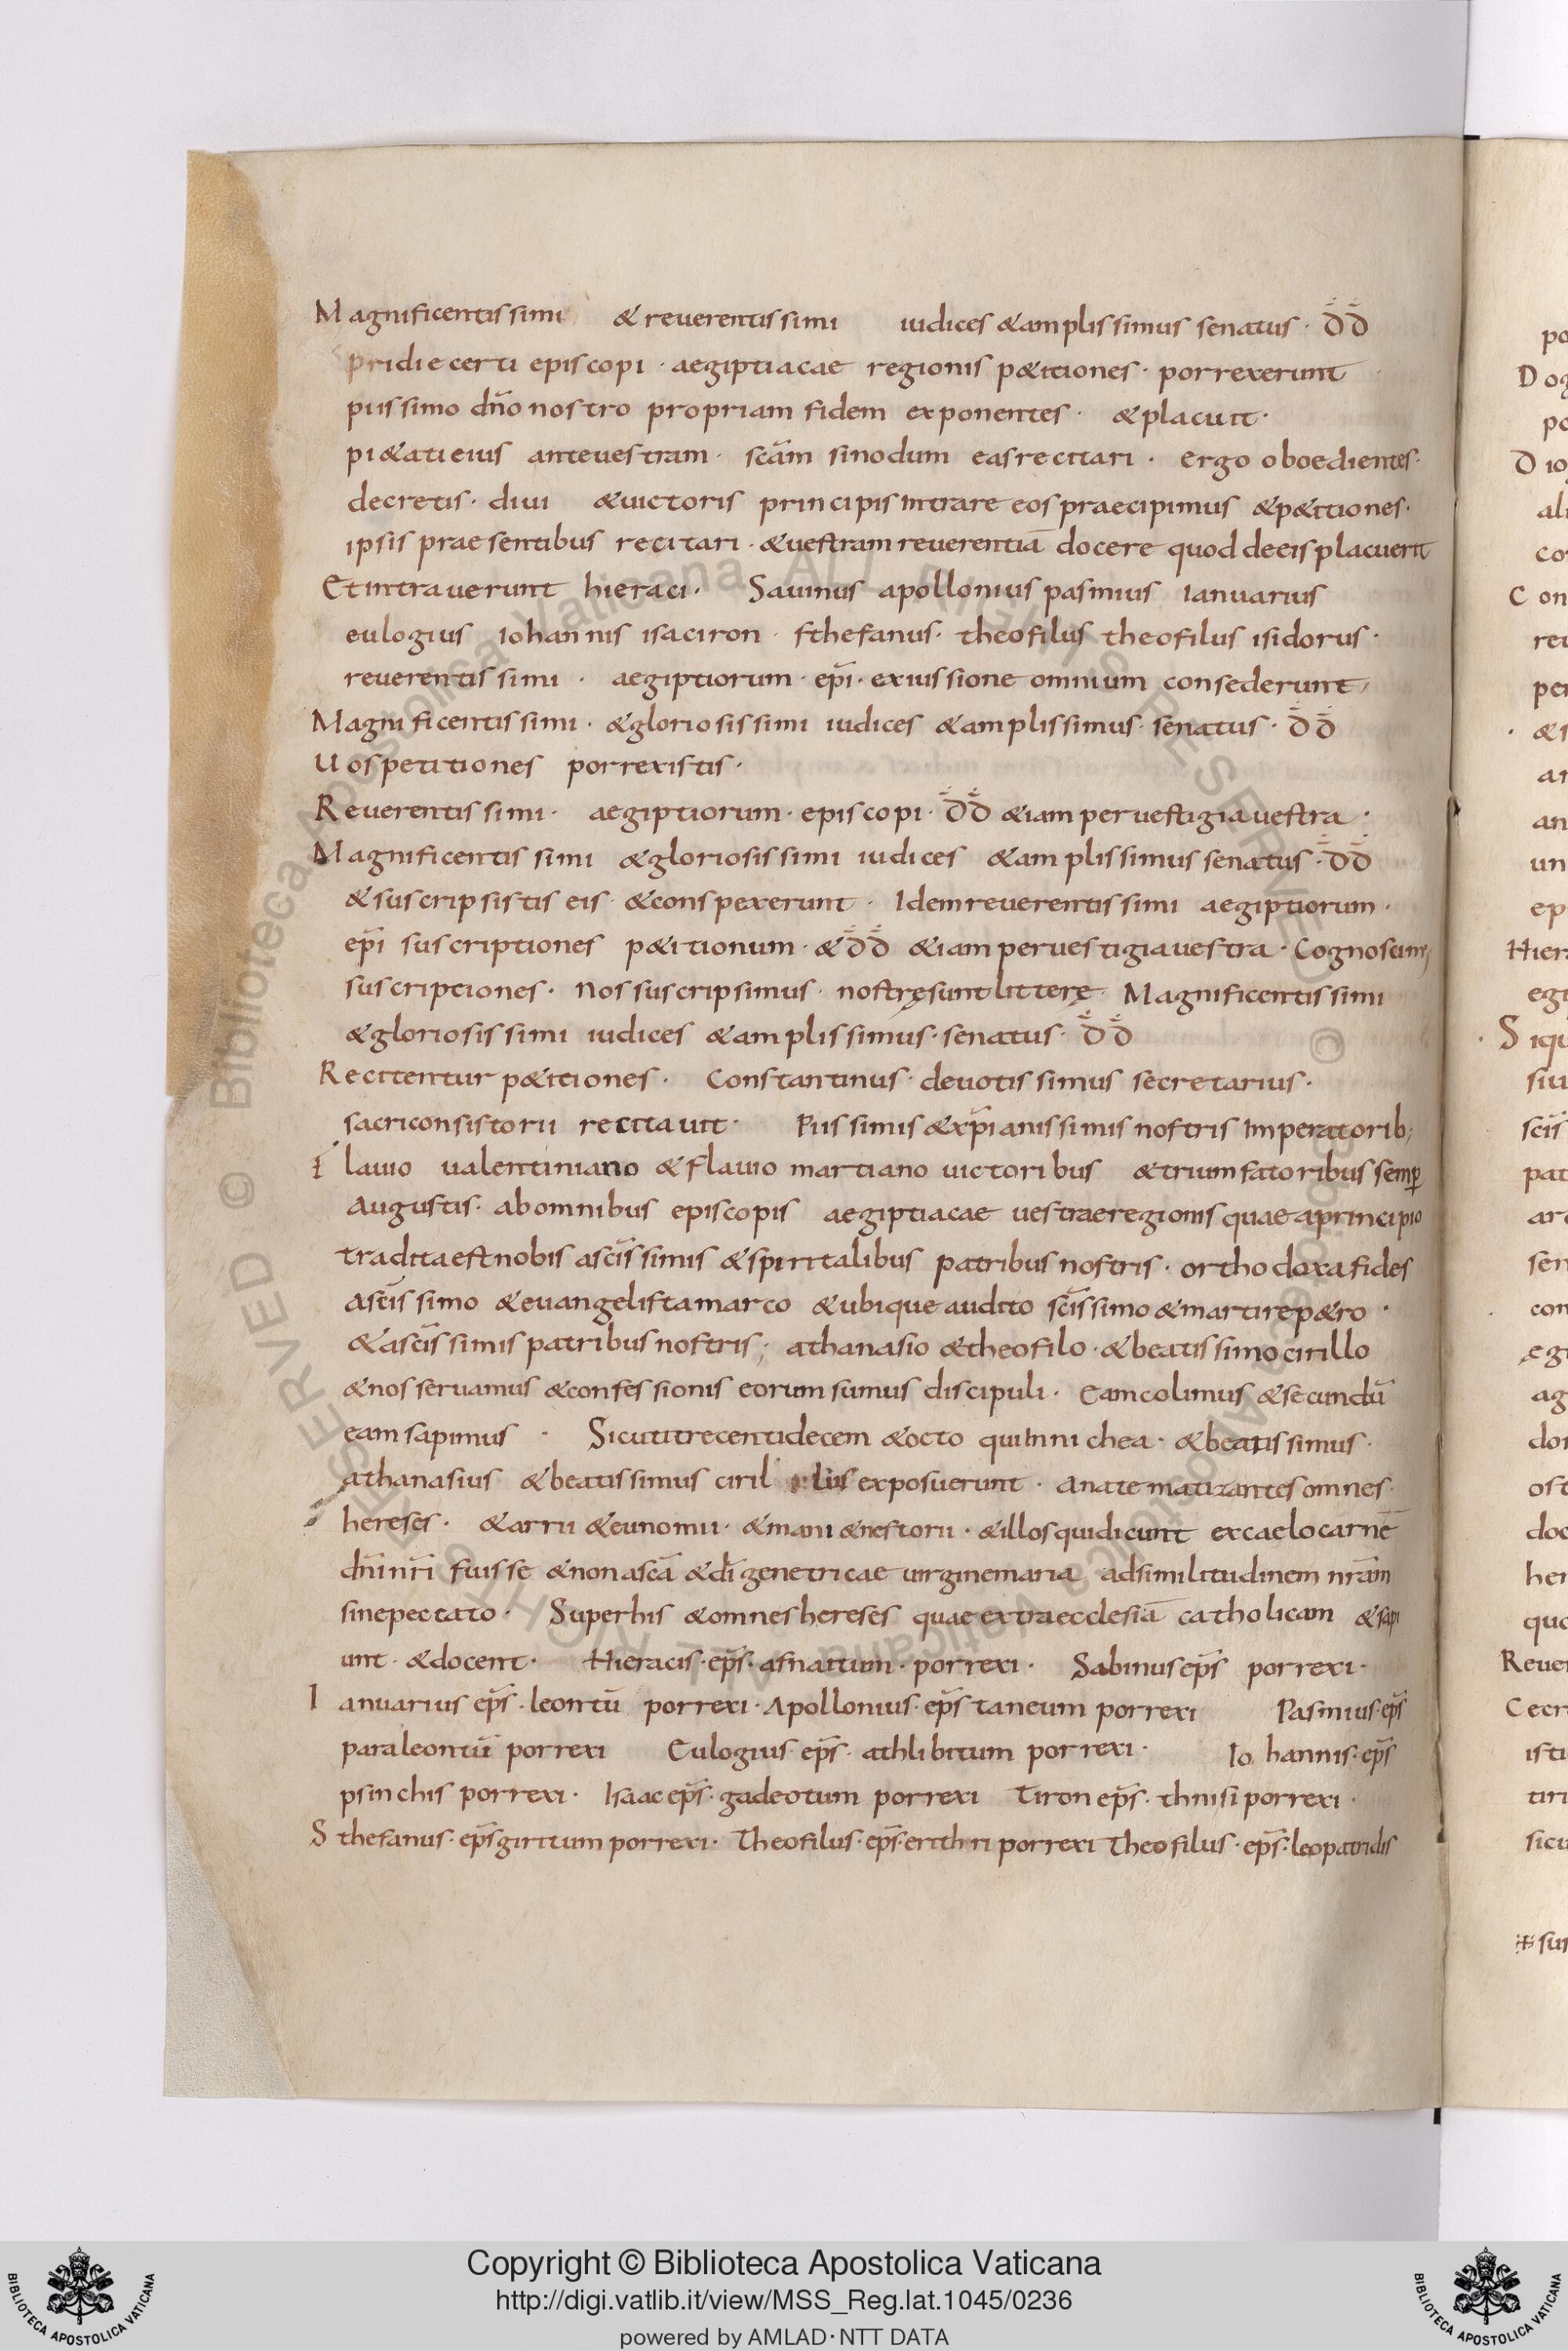 Magnificentissimi & reuerentissimi iudices & amplissimus senatus · đđ
pridie certi episcopi · aegiptiacae regionis p&itiones · porrexerunt
piissimo dn̄o nostro propriam fidem exponentes · & placuit ·
pi&ati eius ante uestram · scām sinodum eas recitari · ergo oboedientes ·
decretis · diui & uictoris principis intrare eos praecipimus & p&itiones ·
ipsis praesentibus recitari · & uestram reuerentiā docere quod de eis placuerit
Et intrauerunt hieraci · Sauinus apollonius pasmius Ianuarius
eulogius iohannis isaciron · sthefanus · theofilus theofilus isidorus ·
reuerentissimi · aegiptiorum · ep̄i · ex iussione omnium consederunt
Magnificentissimi · & gloriosissimi iudices & amplissimus · senatus · đđ
Uos petitiones porrexistis ·
Reuerentissimi · aegiptiorum · episcopi · đđ &iam per uestigia uestra ·
Magnificentissimi & gloriosissimi iudices & amplissimus senatus · đđ
& suscripsistis eis · & conspexerunt · Idem reuerentissimi aegiptiorum ·
ep̄i suscriptiones p&itionum · & đđ &iam per uestigia uestra · Cognoscim;
suscriptiones · Nos suscripsimus · nostrę sunt litterę · Magnificentissimi
& gloriosissimi iudices & amplissimus · senatus · đđ
Recitentur p&itiones · Constantinus · deuotissimus secretarius ·
sacri consistorii recitauit · Piissimis & xp̄ianissimis nostris Imperatorib;
Flauio ualentiniano & flauio martiano uictoribus & triumfatoribus semp
Augustis · ab omnibus episcopis aegiptiacae uestrae regionis quae a principio
tradita est nobis a scīssimis & spiritalibus patribus nostris · orthodoxa fides
A scīssimo & euangelista marco & ubique audito scīssimo & martire p&ro ·
& a scīssimis patribus nostris ; athanasio & theofilo · & beatissimo cirillo
& nos seruamus & confessionis eorum sumus discipuli · Eam colimus & secundū
eam sapimus · Sicuti trecenti decem & octo qui In nichea · & beatissimus ·
athanasius & beatissimus ciril lus exposuerunt · anatematizantes omnes ·
hereses · & arrii & eunomii · & mani & nestorii · & illos qui dicunt ex caelo carnē
dn̄i nr̄i fuisse & non a scā & dī genetricae uirgine maria ad similitudinem nr̄am
sine peccato · Super his & omnes hereses quae extra ecclesiā catholicam & sapi
unt · & docent · Hieracis · ep̄s · afnaitum · porrexi · Sabinus ep̄s porrexi ·
Ianuarius ep̄s · leontū porrexi · Apollonius · ep̄s taneum porrexi Pasmius · ep̄s
paraleontū porrexi Eulogius · ep̄s · athlibitum porrexi · Iohannis · ep̄s
psinchis porrexi · Isaac ep̄s · gadeotum porrexi Tiron ep̄s · thnisi porrexi ·
Sthefanus · ep̄s giritum porrexi · Theofilus · ep̄s · erithri porrexi Theofilus · ep̄s · leopatridis
Copyright © Biblioteca Apostolica Vaticana
http://digi.vatlib.it/view/MSS_Reg.lat.1045/0236
powered by AMLAD·NTT DATA